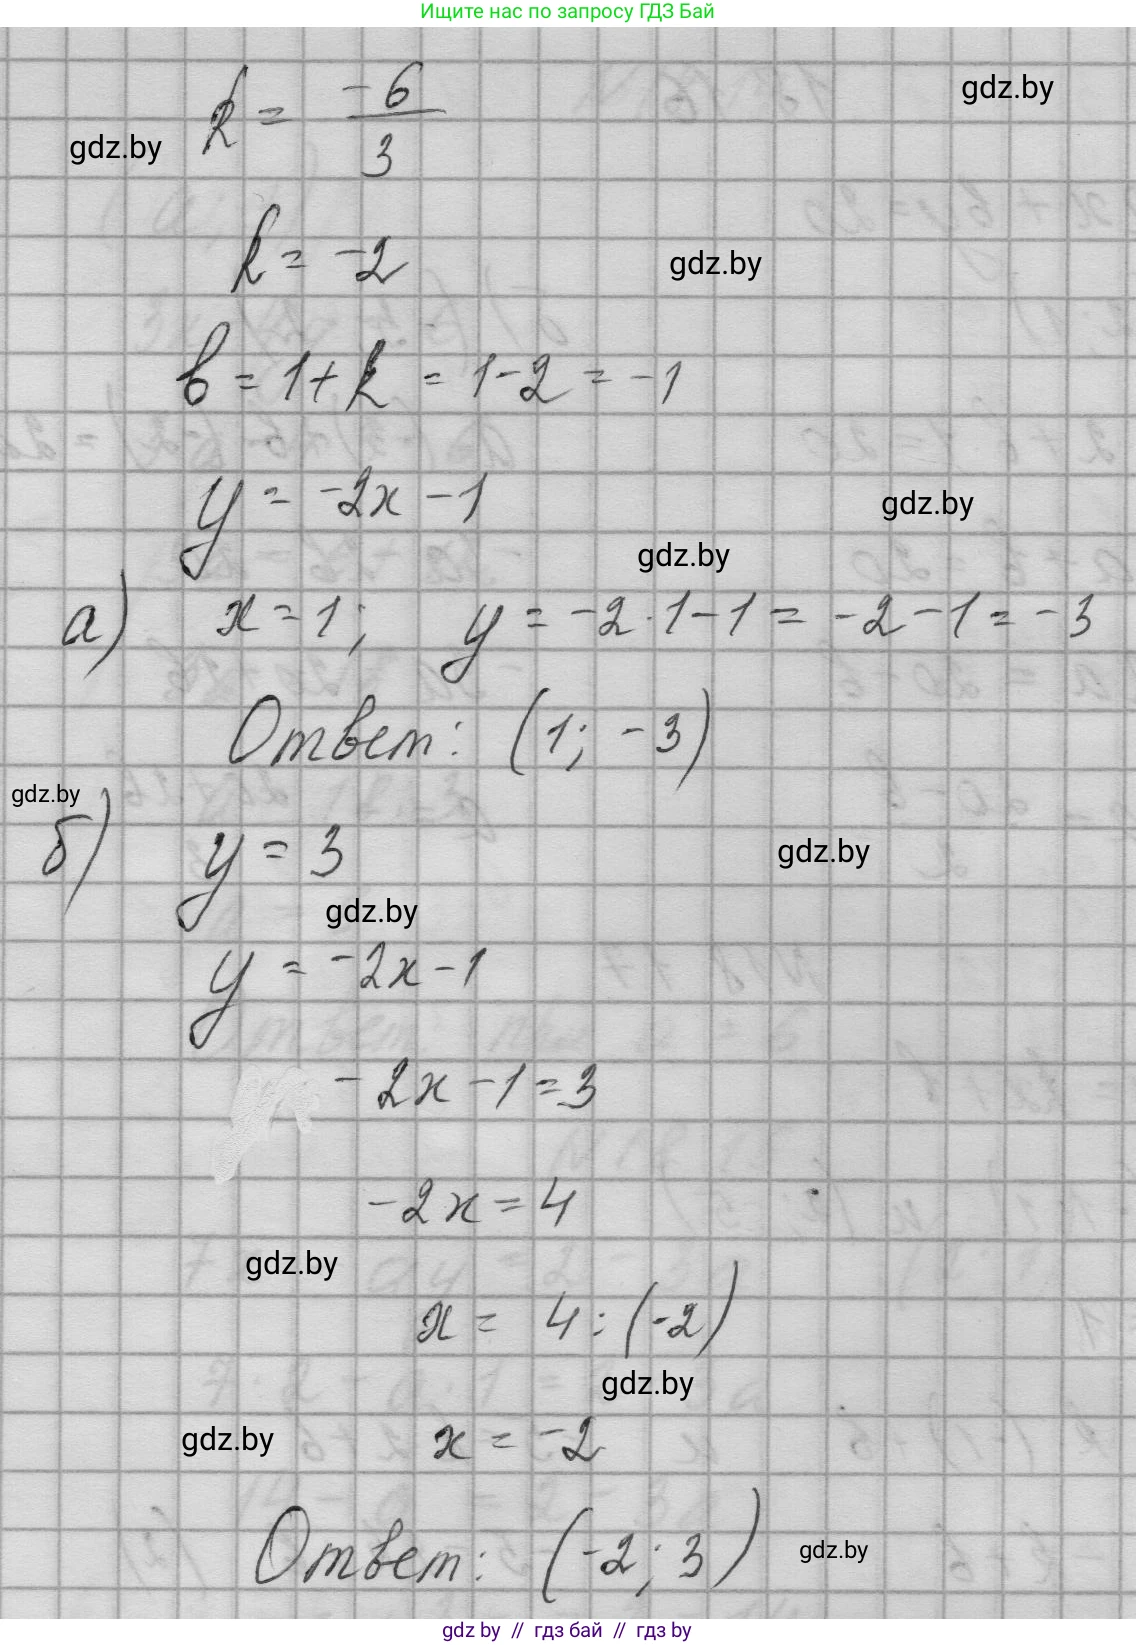 Ищите нас по запросу ГДЗ Бай
k = -6/3
gdz.by
gdz.by
k = -2
gdz.by
b = 1 + k = 1 - 2 = -1
y = -2x - 1
gdz.by
gdz.by
а) x = 1; y = -2 · 1 - 1 = -2 - 1 = -3
Ответ: (1; -3)
gdz.by
б) y = 3
gdz.by
gdz.by
y = -2x - 1
-2x - 1 = 3
-2x = 4
gdz.by
x = 4 : (-2)
gdz.by
gdz.by
x = -2
Ответ: (-2; 3)
gdz.by
gdz by // гдз бай // gdz by